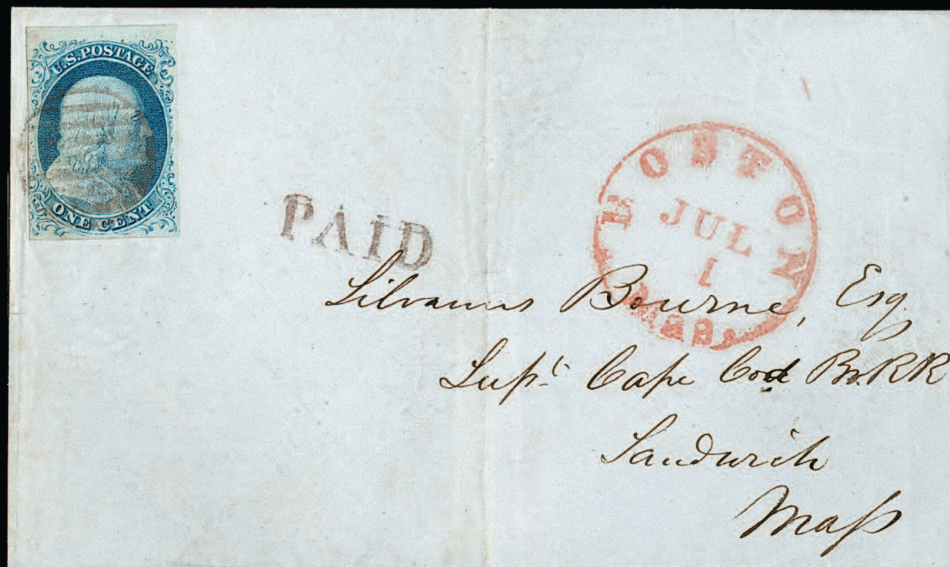 U.S. POSTAGE
ONE CENT
PAID
BOSTON
JUL
1
Mas.
Silvanus Bourne, Esq.
Supt. Cape Cod Br. RR
Sandwich
Mass